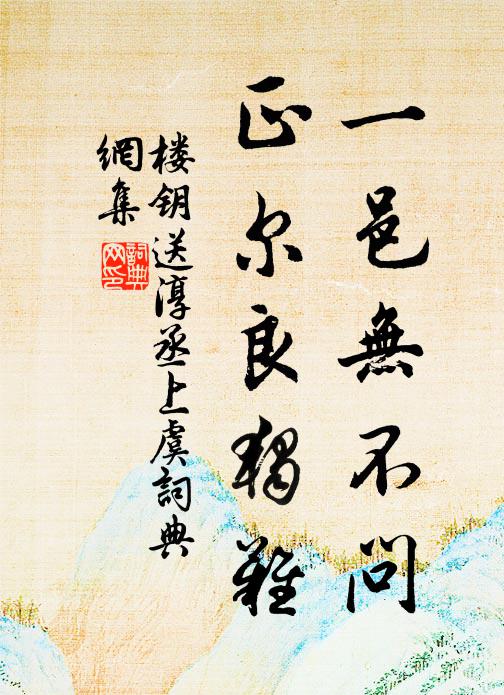 一邑無不問
正尔良獨難
楼钥送淳丞上虞詞典
網集
詞典网印